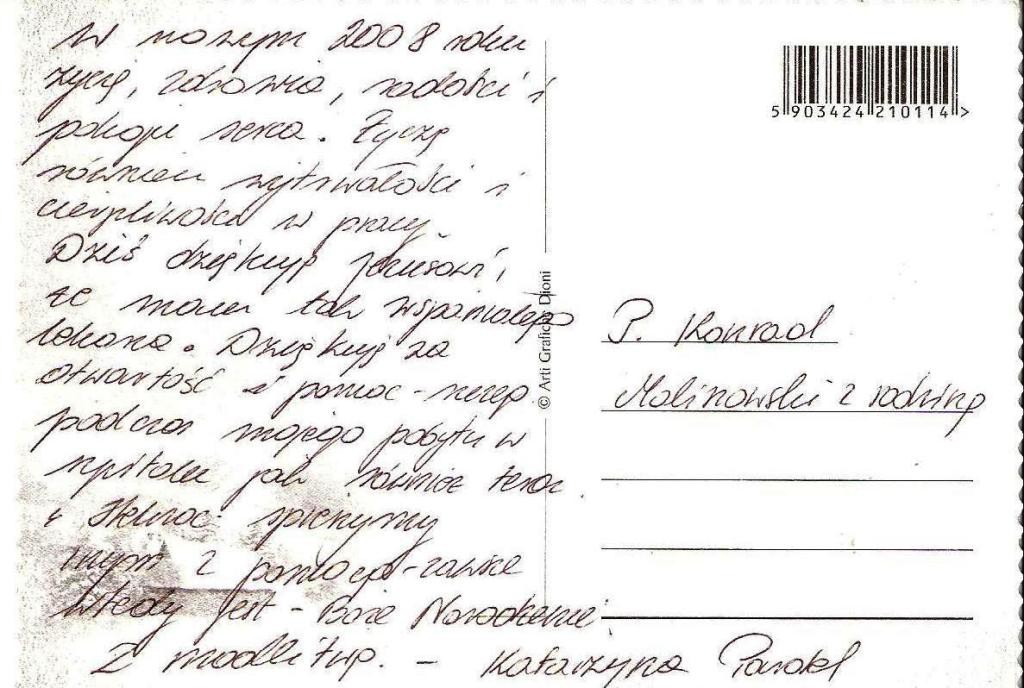 W nowym 2008 roku
życzę, zdrowia, radości i
pokoju serca. Życzę
również wytrwałości i
cierpliwości w pracy.
Dziś dziękuję Jezusowi,
że mam tak wspaniałego
lekarza. Dziękuję za
otwartość i pomoc
podczas mojego pobytu w
szpitalu jak również teraz.
spieszymy
innym z pomocą - zawsze
wtedy jest - Boże Narodzenie.
Z modlitwą. - Katarzyna
5 903424 210114 >
© Arti Grafiche Dioni
P. Konrad
Malinowski z rodziną